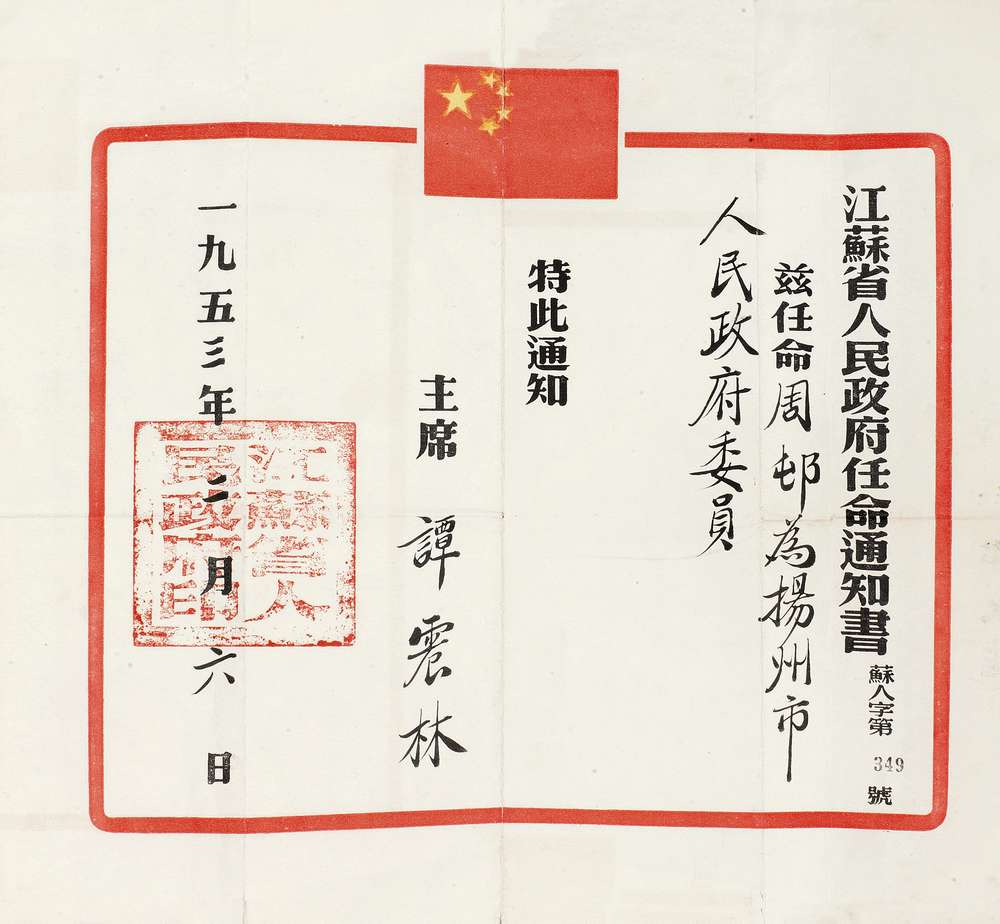 江蘇省人民政府任命通知書
蘇人字第349號
茲任命周邨為揚州市
人民政府委員
特此通知
主席 譚震林
一九五三年二月六日
江蘇省人
民政府印